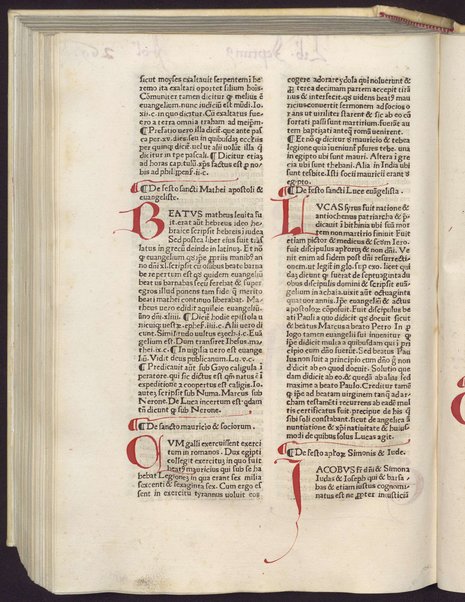 sicut moyses exaltauit serpentem ī he
remo ita exaltari oportet filium hoīs
Comuniter tamen dicitur qꝫ melius ē
euangelium. nunc iudiciū est mūdi. Io.
xii.c. in quo dicitur. Cū exaltatus fue-
ro a terra omnia traham ad meip̄m.
¶ Prefatio uero illa dicit᷑ que ante pas
ca per .xv. dies. sed in quibusdā ecc̄liis
per quinqꝫ dies. uel ut alii uolūt illa q̄
dicitur in tp̄e pascali. ¶ Dicitur etiā
ad horas cap̄tulū. xp̄s factus est p̄ no
bis ad phil. ii.c.
¶ De festo sancti Mathei apostoli &
euangeliste.
BEATUS matheus leuita fu
it. erat aūt hebreus ideo he-
braice scripsit hebreis ī iudea
Sed postea liber eius fuit trās
latus in grecū deinde in latinū. Et nō
qꝫ euangelium
no dn̄i .xl. scripsit cū oīlibus beate barna
be reperta in quibus euangelium mathei
beatus barnabas secū ferebat & super
egros illud ponens tam fide qꝫ merito
beati mathei continuo liberabat. Ma-
theus uero edidit aquileie euangelium/
āno dn̄i .xliii. ¶ Dicunt ibidē epistola
nicuiqꝫ uest᷑ꝫ. ephes. iiii.c. Alii uero di
cunt. Similitudo uultus ezech .i.c. Euā
gelium est. Dum transiret Ihesus. ma-
thei .ix.c. ¶ In uigilia uero est euange.
Io. Vidit deus publicanum. Lu .v.c.
¶ Predicauit aūt sub Gayo caligula ī
peratore qui sic dictus est qm̄ natus ē ī
expeditione a coopertus est caligis. Io.
autē scripsit sub Numa. Marcus sub
Nerone. De Luca incertum est. qdam
tn̄ dicunt qꝫ sub Nerone.
¶ De sancto mauricio & sociorum.
QVM galli exercuissent exerci
tum in romanos. Dux egipti
collegit exercitū ꝫ in quo fuit
beatꝰ mauricius qui sub se ha
bebat Legionē ꝫ in qua erant sex milia
sexcenti & sexaginta sex. Cum ergo es
sent in exercitu tyrannus uoluit eos
cogere adorare ydola qui noluerunt &
ꝓ terea decimam partem accepit tirā
nus & interfecit. qꝫ uidens beatꝰ mau
ricius conuertit sermonem ad socios o
rans ut uiriliter starent & sic ab eo cō
fortati passi sunt martirium. fuerāt au
tem baptisati anteqꝫ romā uenirent.
¶ Et nō qꝫ dicitur qꝫ mauri & thebea
legione quia iuenimꝰ plures tebe. una
in egipto ubi sunt mauri. Altera ī gre
cia ubi sunt thebani. Alia in India ubi
sunt tebeite. Isti socii mauricii erant s
egipto.
¶ De festo sancti Luce euāgelista.
LVCAS syrus fuit natione &
antiochenus patriarcha & p̄-
dicauit ī bithinia ubi suā mor
tem non martirio finiuit. Fuit
etiam pictor & medicus & scōm Iero.
fuit discipulus aplorꝫ & non dn̄i. Ve
nit enim ad fidem post dn̄i resurrecti-
onem. ut legit᷑ in glo. sup exo. licet qui
dā dicunt qꝫ fuerat de septuaginta du
obus discipulis domini & scripsit euan-
gelium in achaia. uixit aūt octuaginta
quatuor annis. Ip̄e euangeliū & actus
apostolorꝫ cōposuit. Fuit discipulus be
ati Pauli a quo didicit & uocatur. Sicut
beatus Marcus a beato Petro In pꝰ
logo tamen euangelii sui innuitur qꝫ
didicerit multa a quibusdam qui ī prī
cipio cum dn̄o fuerūt. Sed beatus Pau
lus non fuit a principio cum dn̄o qꝫ n̄
dum didicit ab eo quod docuit. Solutio quę
dam didicit ab eo & quędā ab alius sed
maxime a beato Paulo. Creditur tam̄
qꝫ ip̄e ad beatam uirginem tanqꝫ ad ar-
cham testamēti recurrens ab eadē mul
tis certificatus fuit. precipue de hiis qꝫ
sibi soli constabant. sicut de angelica ā
nuntiatione & xp̄i natiuitate & huius-
modi de quibus solus Lucas agit.
¶ De festo aplorꝫ Simonis & Iude.
IACOBVS fr̄ dn̄i & Simon a
Iudas & Ioseph qui & barsa-
bas & etiam iustus cognomi-
natus est ne ꝓpter iniusticiā